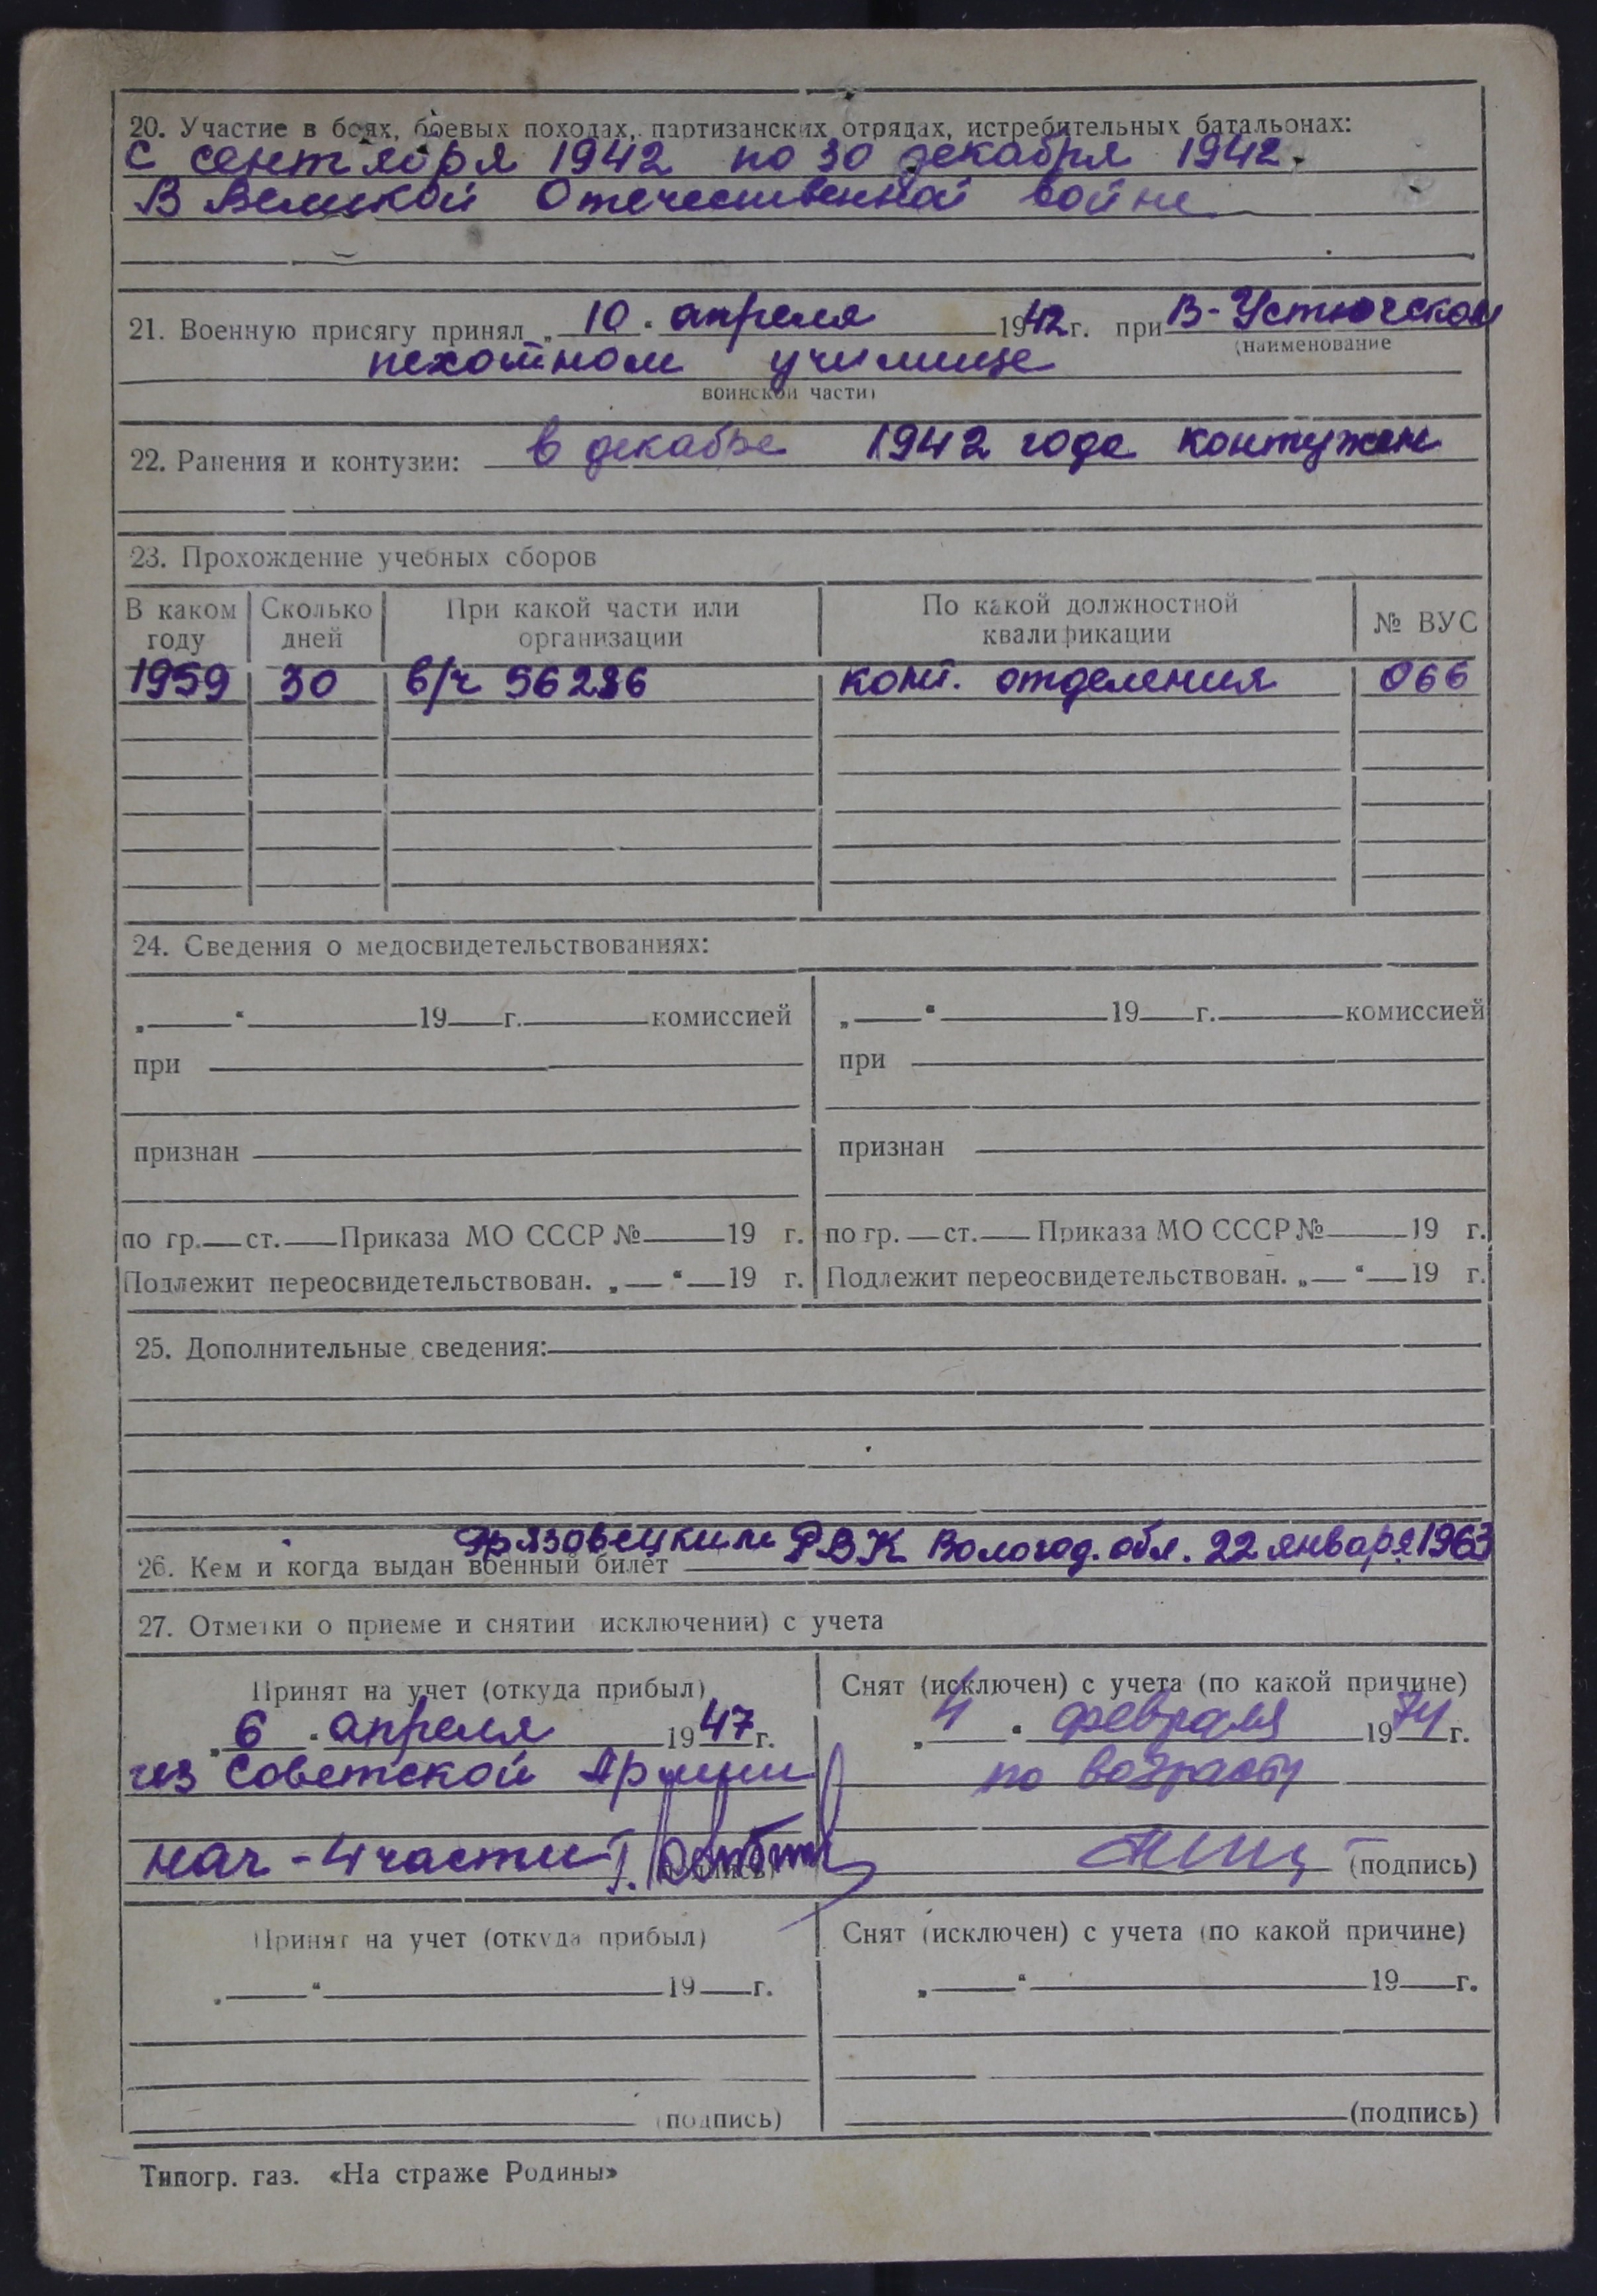 20. Участие в боях, боевых походах, партизанских отрядах, истребительных батальонах:
с сентября 1942 по 30 декабря 1942.
В Великой Отечественной войне
21. Военную присягу принял „10" апреля 1942 г. при В-Устюгском
(наименование
пехотном училище
воинской части)
22. Ранения и контузии: в декабре 1942 года контужен
23. Прохождение учебных сборов
В каком году Сколько дней При какой части или организации По какой должностной квалификации № ВУС
1959 30 в/ч 56286 ком. отделения 066
24. Сведения о медосвидетельствованиях:
„ " 19 г. комиссией „ " 19 г. комиссией
при при
признан признан
по гр. ст. Приказа МО СССР № 19 г. по гр. ст. Приказа МО СССР № 19 г.
Подлежит переосвидетельствован. „ " 19 г. Подлежит переосвидетельствован. „ " 19 г.
25. Дополнительные сведения:
26. Кем и когда выдан военный билет Грязовецким РВК Вологод. обл. 22 января 1963
27. Отметки о приеме и снятии исключении) с учета
Принят на учет (откуда прибыл) Снят (исключен) с учета (по какой причине)
„6" апреля 1947 г. „4" февраля 1974 г.
из Советской Армии по возрасту
нач-4 части (подпись) (подпись)
Принят на учет (откуда прибыл) Снят (исключен) с учета (по какой причине)
„ " 19 г. „ " 19 г.
(подпись) (подпись)
Типогр. газ. «На страже Родины»